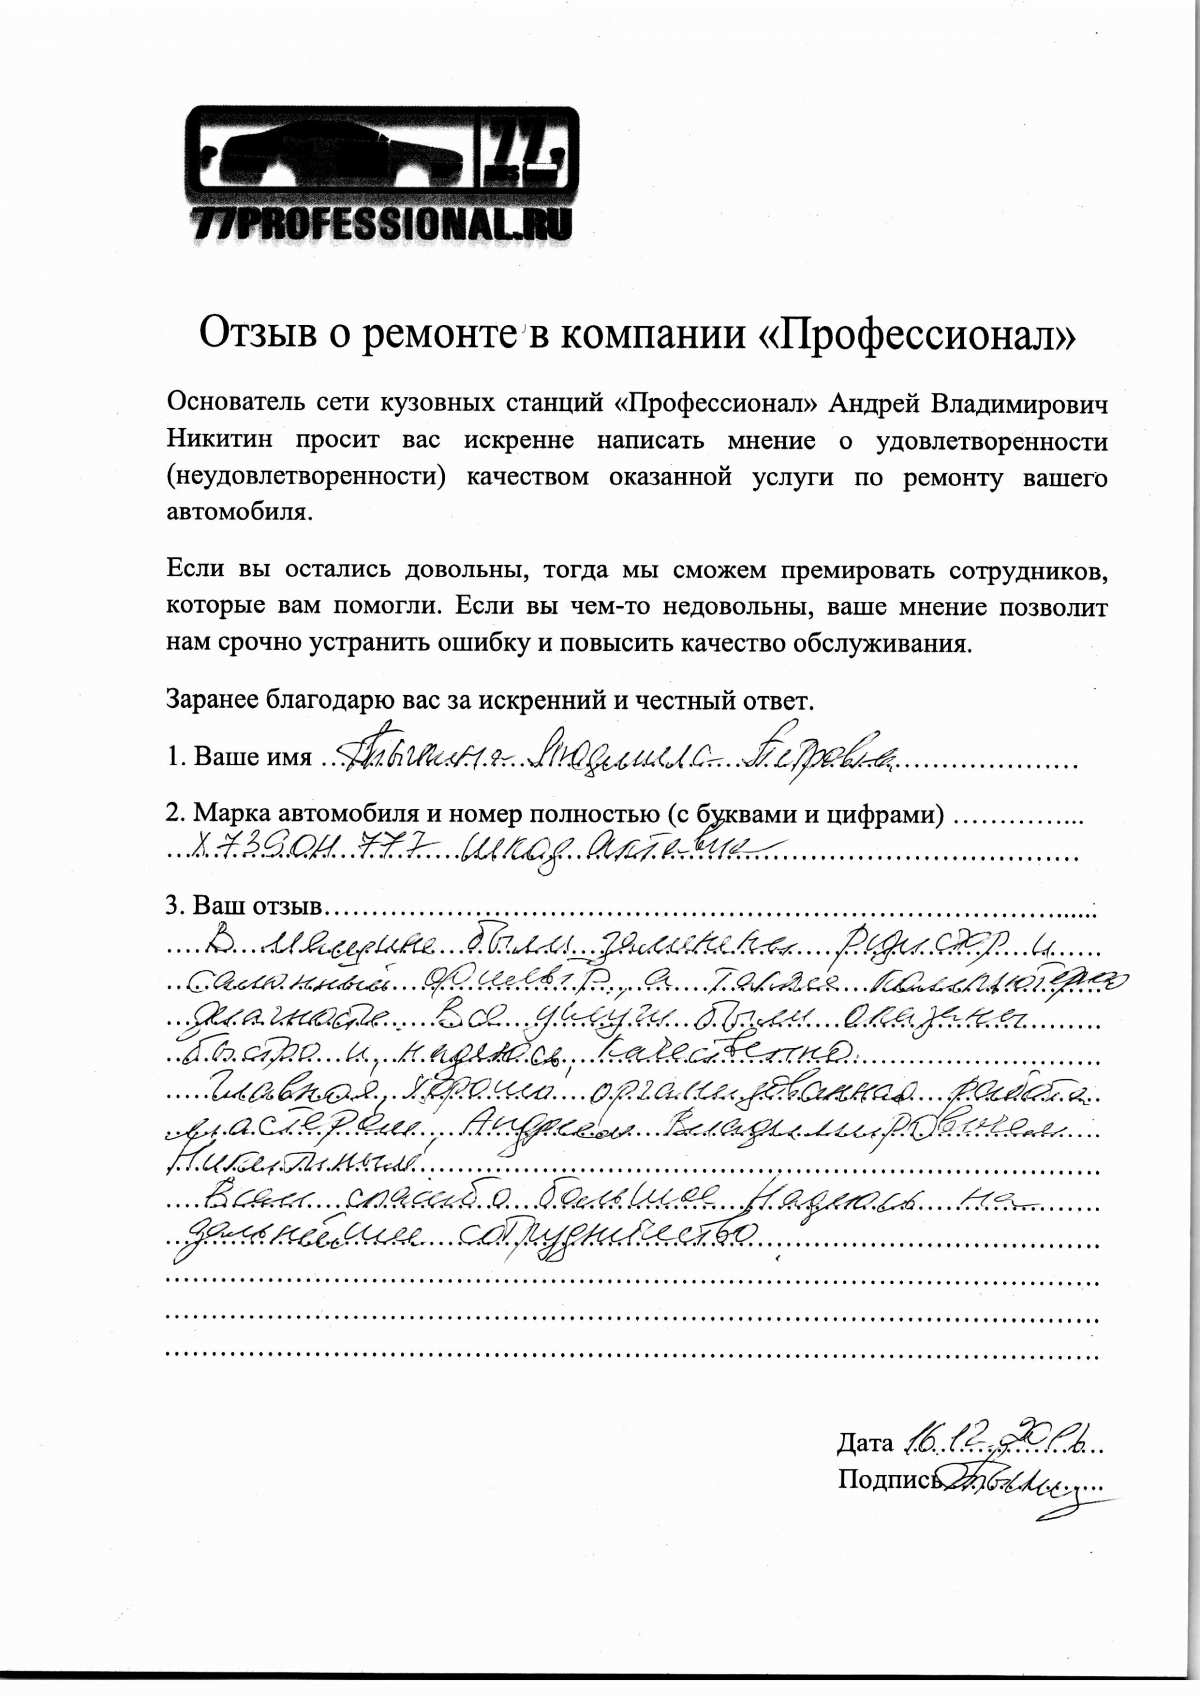 77
77PROFESSIONAL.RU
Отзыв о ремонте в компании «Профессионал»
Основатель сети кузовных станций «Профессионал» Андрей Владимирович
Никитин просит вас искренне написать мнение о удовлетворенности
(неудовлетворенности) качеством оказанной услуги по ремонту вашего
автомобиля.
Если вы остались довольны, тогда мы сможем премировать сотрудников,
которые вам помогли. Если вы чем-то недовольны, ваше мнение позволит
нам срочно устранить ошибку и повысить качество обслуживания.
Заранее благодарю вас за искренний и честный ответ.
1. Ваше имя Людмила Петровна
2. Марка автомобиля и номер полностью (с буквами и цифрами)
Х 739 ОН 777 Шкода Октавия
3. Ваш отзыв
В машине были заменены и
салонный фильтр, а также
Все услуги были оказаны
быстро и, надеюсь, качественно.
Главная, хорошо организованная работа
мастером, Андреем Владимировичем
Никитиным.
Всем спасибо большое Надеюсь на
дальнейшее сотрудничество
Дата 16.12.2016
Подпись